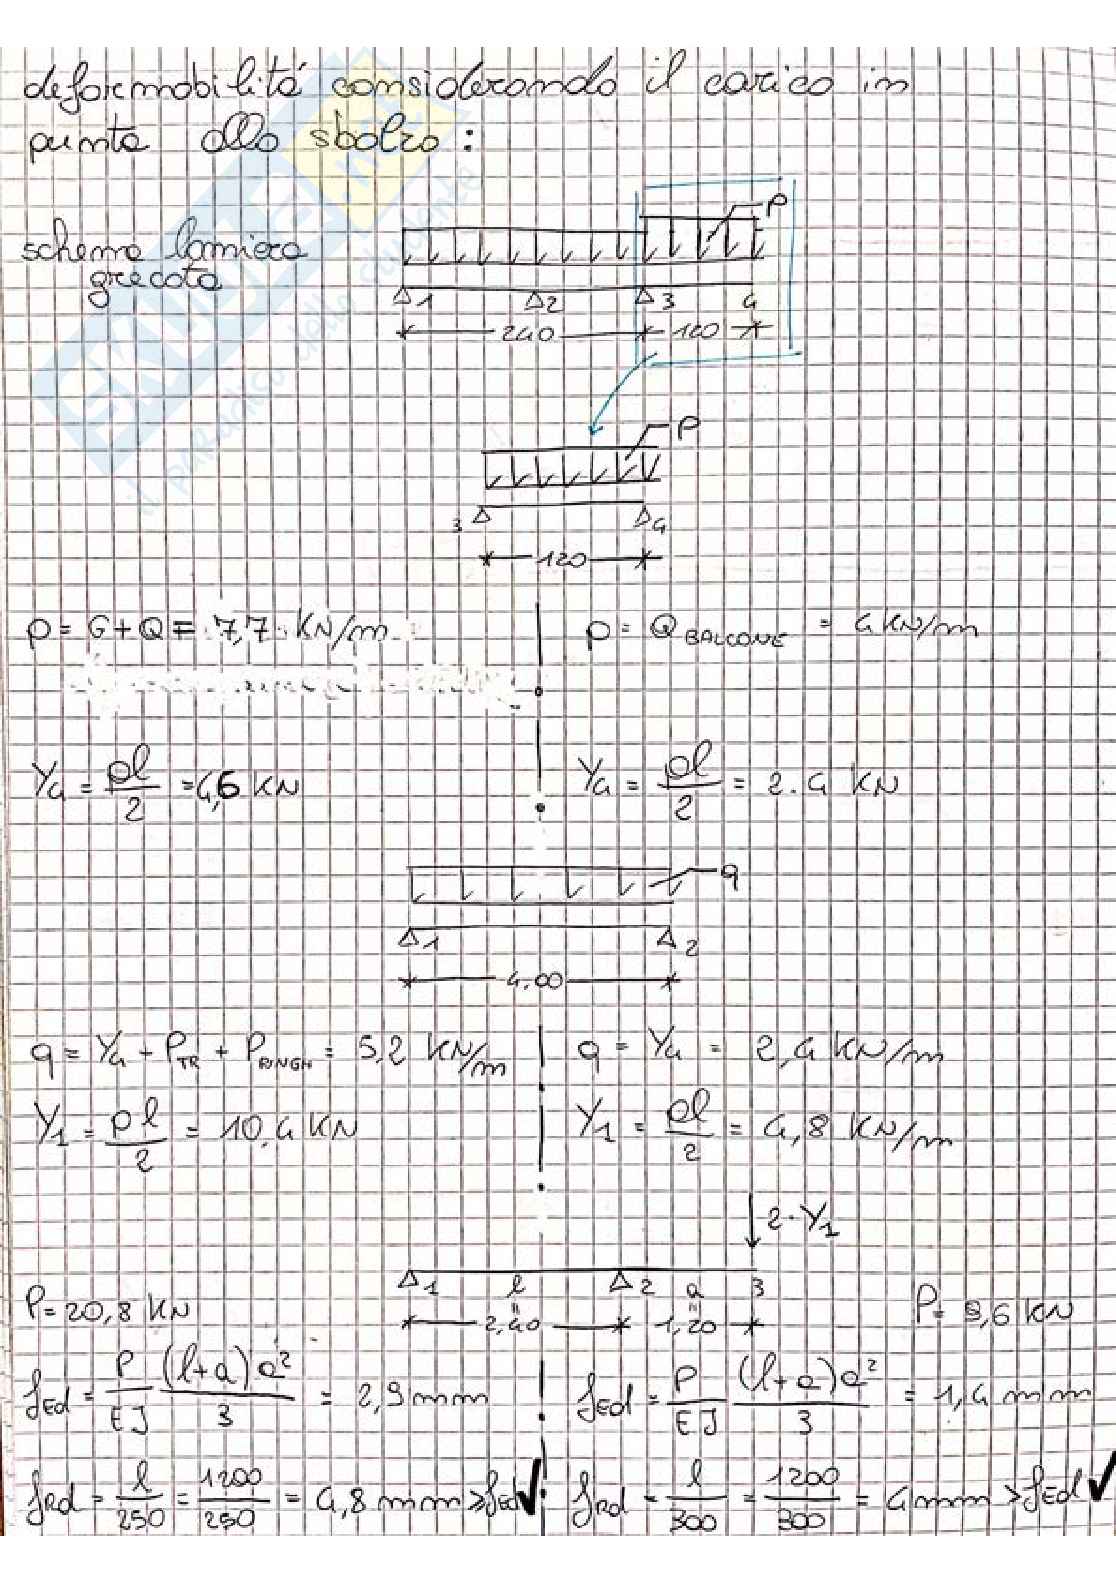 deformabilità considerando il carico in
punta allo sbalzo:
schema lamiera
grecata
P
Δ1 Δ2 Δ3 4
240 120
P
3 Δ Δ4
120
p = G+Q = 7,7 KN/m
p = Q BALCONE = 4 KN/m
Y4 = pl/2 = 4,6 KN
Y4 = pl/2 = 2.4 KN
q
Δ1 Δ2
4,00
q = Y4 + PTR + PRINGH = 5,2 KN/m
q = Y4 = 2,4 KN/m
Y1 = pl/2 = 10,4 KN
Y1 = pl/2 = 4,8 KN/m
2·Y1
Δ1 l Δ2 a 3
P = 20,8 KN
2,40 1,20
P = 9,6 KN
fEd = P/EJ (l+a)a²/3 = 2,9 mm
fEd = P/EJ (l+a)a²/3 = 1,4 mm
fRd = l/250 = 1200/250 = 4,8 mm > fEd ✓
fRd = l/300 = 1200/300 = 4 mm > fEd ✓